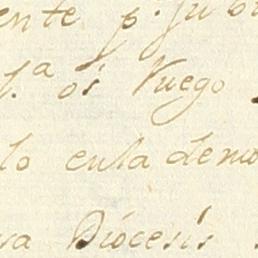 ente p. Jubi
f.a os Ruego
lo en la demo
va Diocesis